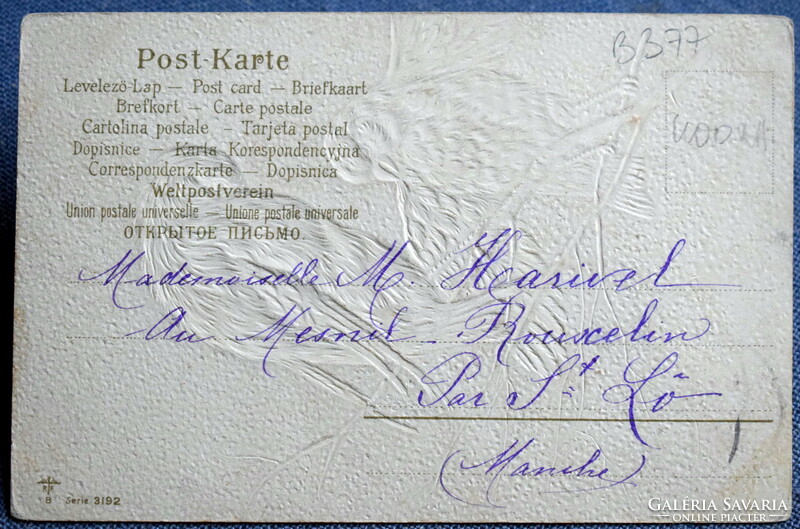 B377
Post-Karte
Levelező-Lap — Post card — Briefkaart
Brefkort — Carte postale
Cartolina postale — Tarjeta postal
Dopisnice — Karta Korespondencyjna
Correspondenzkarte — Dopisnica
Weltpostverein
Union postale universelle — Unione postale universale
ОТКРЫТОЕ ПИСЬМО.
Mademoiselle M. Harivel
Au Mesnil-Rouxelin
Par St Lô
(Manche)
8 Serie 3192
GALÉRIA SAVARIA
ONLINE PIACTÉR